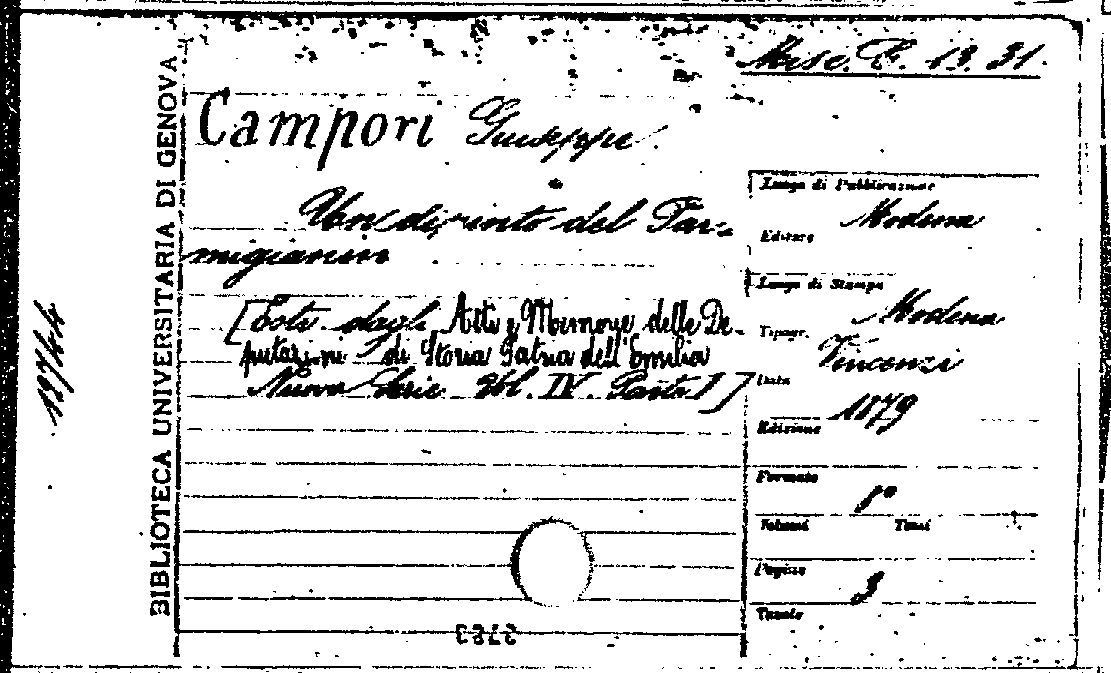 Misc. C. 13. 31.
BIBLIOTECA UNIVERSITARIA DI GENOVA
Campori Giuseppe
Un dipinto del Par-
migianino
[Estr. dagli Atti e Memorie delle De-
putazioni di Storia Patria dell'Emilia
Nuova Serie Vol. IV. Parte I]
Luogo di Pubblicazione
Modena
Editore
Luogo di Stampa
Modena
Tipogr.
Vincenzi
Data
1879
Edizione
Formato
8°
Volumi Tomi
Pagine
3
Tavole